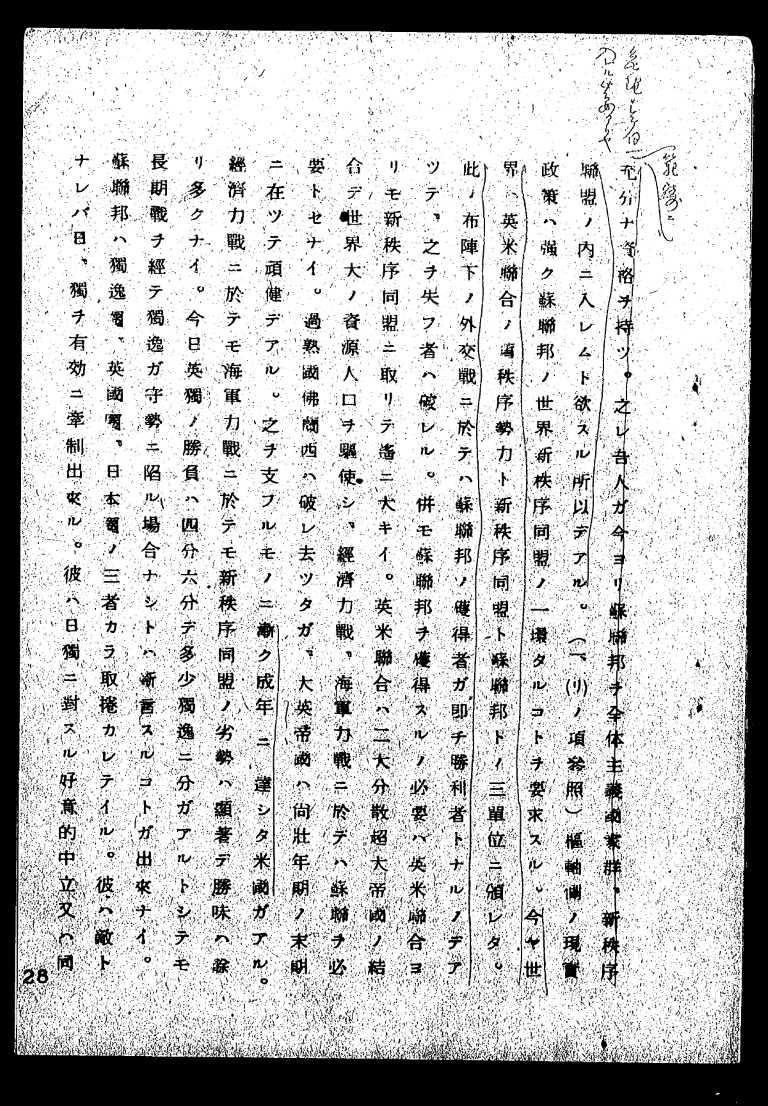 充分ナ資格ヲ持ツ。之レ吾人ガ今ヨリ蘇聯邦ヲ全体主義國家群、新秩序
聯盟ノ内ニ入レムト欲スル所以デアル。(一、(リ)ノ項參照)樞軸側ノ現實
政策ハ强ク蘇聯邦ノ世界新秩序同盟ノ一環タルコトヲ要求スル。今ヤ世
界ハ英米聯合ノ舊秩序勢力ト新秩序同盟ト蘇聯邦トノ三單位ニ頒レタ。
此ノ布陣下ノ外交戰ニ於テハ蘇聯邦ノ獲得者ガ即チ勝利者トナルノデア
ツテ、之ヲ失フ者ハ破レル。併モ蘇聯邦ヲ獲得スルノ必要ハ英米聯合ヨ
リモ新秩序同盟ニ取リテ遙ニ大キイ。英米聯合ハ二大分散超大帝國ノ結
合デ世界大ノ資源人口ヲ驅使シ、經濟力戰、海軍力戰ニ於テハ蘇聯ヲ必
要トセナイ。過熟國佛蘭西ハ破レ去ツタガ、大英帝國ハ尚壯年期ノ末期
ニ在ツテ頑健デアル。之ヲ支フルモノニ漸ク成年ニ達シタ米國ガアル。
經濟力戰ニ於テモ海軍力戰ニ於テモ新秩序同盟ノ劣勢ハ顯著デ勝味ハ餘
リ多クナイ。今日英獨ノ勝負ハ四分六分デ多少獨逸ニ分ガアルトシテモ
長期戰ヲ經テ獨逸ガ守勢ニ陷ル場合ナシトハ斷言スルコトガ出來ナイ。
蘇聯邦ハ獨逸軍、英國軍、日本軍ノ三者カラ取捲カレテイル。彼ハ敵ト
ナレバ日、獨ヲ有効ニ牽制出來ル。彼ハ日獨ニ對スル好意的中立又ハ同
28